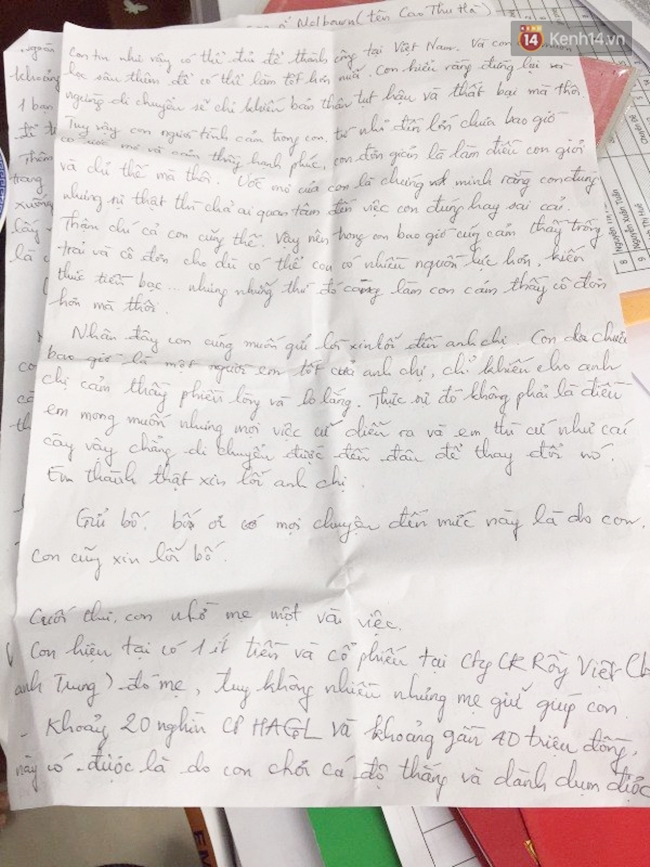 ở Melbourn (tên Cao Thu Hà)
14 Kenh14.vn
Con tin như vậy có thể đủ để thành công tại Việt Nam. Và con
học sâu thêm để có thể làm tốt hơn nữa. Con hiểu rằng đứng lại và
ngừng di chuyển sẽ chỉ khiến bản thân tụt hậu và thất bại mà thôi.
Tuy vậy con người tình cảm trong con, từ nhỏ đến lớn chưa bao giờ
có ước mơ và cảm thấy hạnh phúc, con đơn giản là làm điều con giỏi
và chỉ thế mà thôi. Ước mơ của con là chứng minh rằng con đúng
nhưng sự thật thì chả ai quan tâm đến việc con đúng hay sai cả.
Thậm chí cả con cũng thế. Vậy nên trong con bao giờ cũng cảm thấy trống
trải và cô đơn cho dù có thể con có nhiều nguồn lực hơn, kiến
thức tiền bạc... nhưng những thứ đó càng làm con cảm thấy cô đơn
hơn mà thôi.
Nhân đây con cũng muốn gửi lời xin lỗi đến anh chị. Con chưa
bao giờ là một người em tốt của anh chị, chỉ khiến cho anh
chị cảm thấy phiền lòng và lo lắng. Thực sự đó không phải là điều
em mong muốn nhưng mọi việc cứ diễn ra và em thì cứ như cái
cây vậy chẳng di chuyển được đến đâu để thay đổi nó.
Em thành thật xin lỗi anh chị.
Gửi bố, bố ơi mọi chuyện đến mức này là do con.
Con cũng xin lỗi bố.
Cuối thư, con nhờ mẹ một vài việc.
Con hiện tại có 1 ít tiền và cổ phiếu tại Cty CK Rồng Việt (
anh Trung) đó mẹ, tuy không nhiều nhưng mẹ giữ giúp con.
- Khoảng 20 nghìn CP HAGL và khoảng gần 40 triệu đồng,
này có được là do con chơi cá độ thắng và dành dụm được